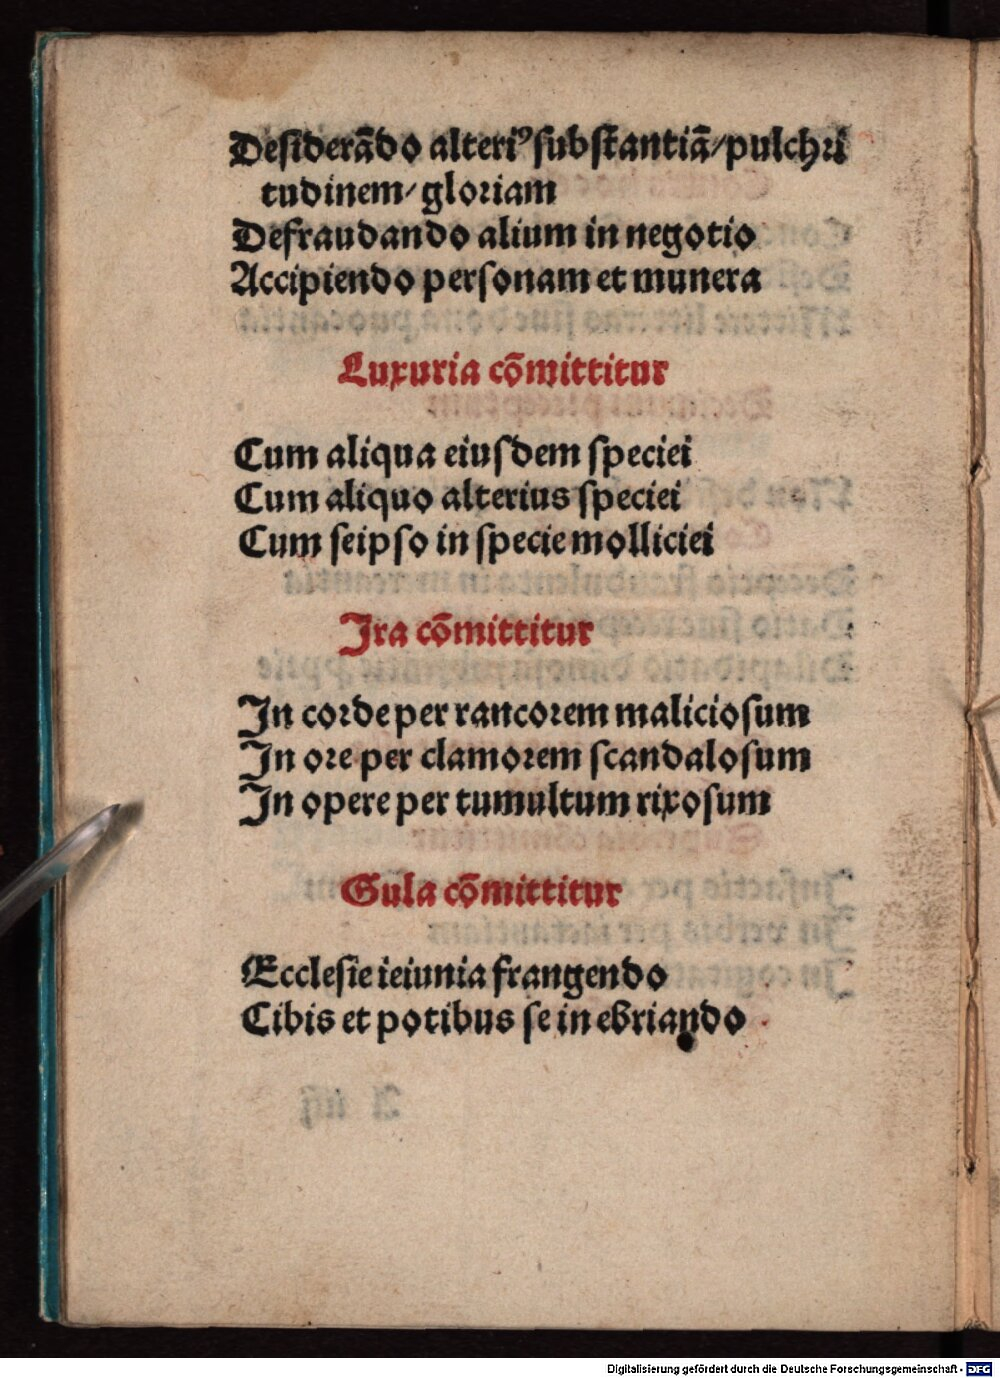 Desiderādo alteriꝰ substantiā/pulchri
tudinem/ gloriam
Defraudando alium in negotio
Accipiendo personam et munera
Luxuria cōmittitur
Cum aliqua eiusdem speciei
Cum aliquo alterius speciei
Cum seipso in specie molliciei
Ira cōmittitur
In corde per rancorem maliciosum
In ore per clamorem scandalosum
In opere per tumultum rixosum
Gula cōmittitur
Ecclesie ieiunia frangendo
Cibis et potibus se in ebriando
Digitalisierung gefördert durch die Deutsche Forschungsgemeinschaft - DFG